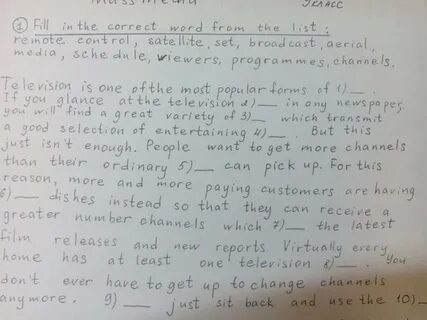 ① Fill in the correct word from the list:
remote control, satellite, set, broadcast, aerial,
media, schedule, viewers, programmes, channels.
Television is one of the most popular forms of 1) __.
If you glance at the television 2) __ in any newspaper,
you will find a great variety of 3) __ which transmit
a good selection of entertaining 4) __. But this
just isn't enough. People want to get more channels
than their ordinary 5) __ can pick up. For this
reason, more and more paying customers are having
6) __ dishes instead so that they can receive a
greater number channels which 7) __ the latest
film releases and new reports Virtually every
home has at least one television 8) __. You
don't ever have to get up to change channels
anymore. 9) __ just sit back and use the 10) __